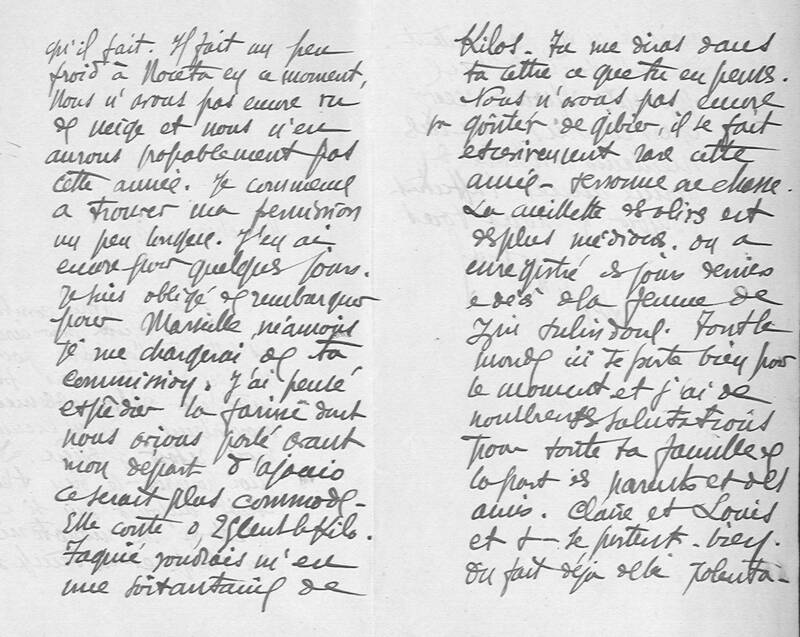 qu'il fait. Il fait un peu
froid à Noceta en ce moment,
Nous n'avons pas encore vu
de neige et nous n'en
aurons probablement pas
cette année. Je commence
a trouver ma permission
un peu longue. J'en ai
encore pour quelques jours.
Je suis obligé de rembarquer
pour Marseille, néamoins
je me chargerai de ta
commission. J'ai pensé
expédier la farine dont
nous avions parlé avant
mon départ d'ajaccio
ce serait plus commode-
Elle coute 0 29 cent le Kilo.
voudrais m'en
une soixantaine de
Kilos. Tu me diras dans
ta lettre ce que tu en penses.
Nous n'avons pas encore
goûter de gibier, il se fait
excessivement rare cette
année - Personne ne chasse.
La cueillette des olives est
des plus médiocres. on a
enregistré ces jours derniers
le décès de la femme de
Tout le
monde ici se porte bien pour
le moment et j'ai de
nombreuses salutations
pour toute ta famille de
la part des parents et des
amis. Claire et Louis
et se portent bien.
On fait déjà de la Polenta-